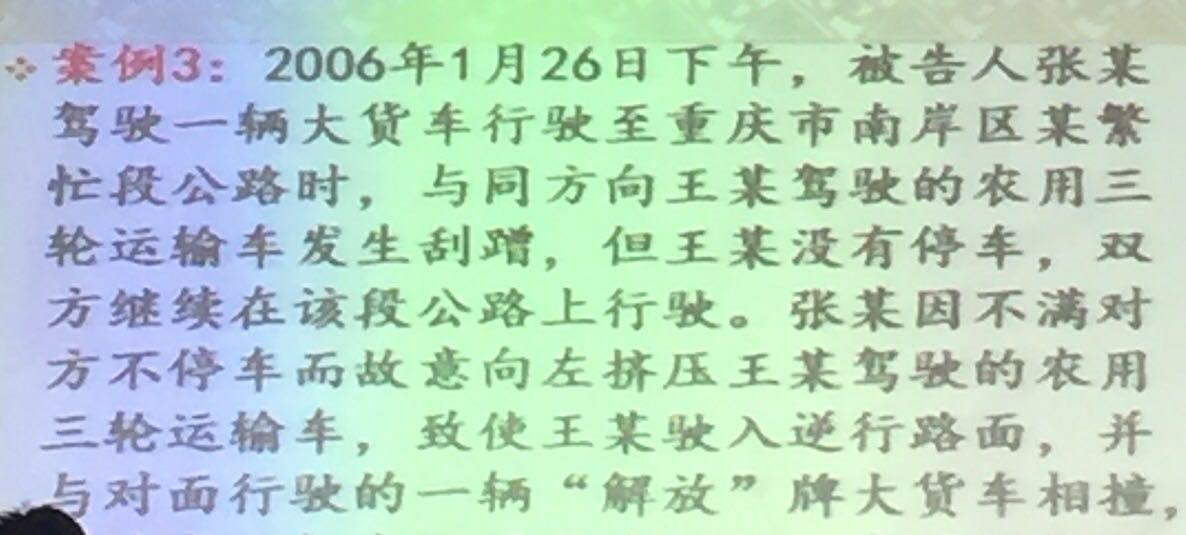 案例3：2006年1月26日下午，被告人张某
驾驶一辆大货车行驶至重庆市南岸区某繁
忙段公路时，与同方向王某驾驶的农用三
轮运输车发生刮蹭，但王某没有停车，双
方继续在该段公路上行驶。张某因不满对
方不停车而故意向左挤压王某驾驶的农用
三轮运输车，致使王某驶入逆行路面，并
与对面行驶的一辆“解放”牌大货车相撞，